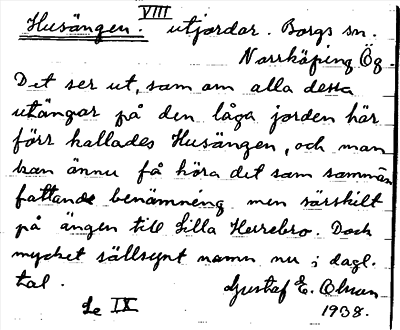 VIII
Husängen. utjordar. Borgs sn.
Norrköping Ög.
Det ser ut, som om alla dessa
utängar på den låga jorden här
förr kallades Husängen, och man
kan ännu få höra det som samman
fattande benämning men särskilt
på ängen till Lilla Herrebro. Dock
mycket sällsynt namn nu i dagl.
tal.
Gustaf E. Olsson
Se IX
1938.